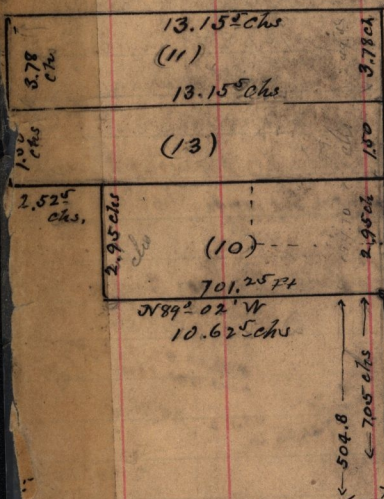 13.15⁵ chs
3.78 ch.
(11)
3.78 ch
13.15⁵ chs
1.50 chs
(13)
1.50
2.52⁵ chs.
2.95 chs
chs
(10)
2.95 ch
701.25 Ft
N 89° 02' W
10.62⁵ chs
504.8
7.05 chs